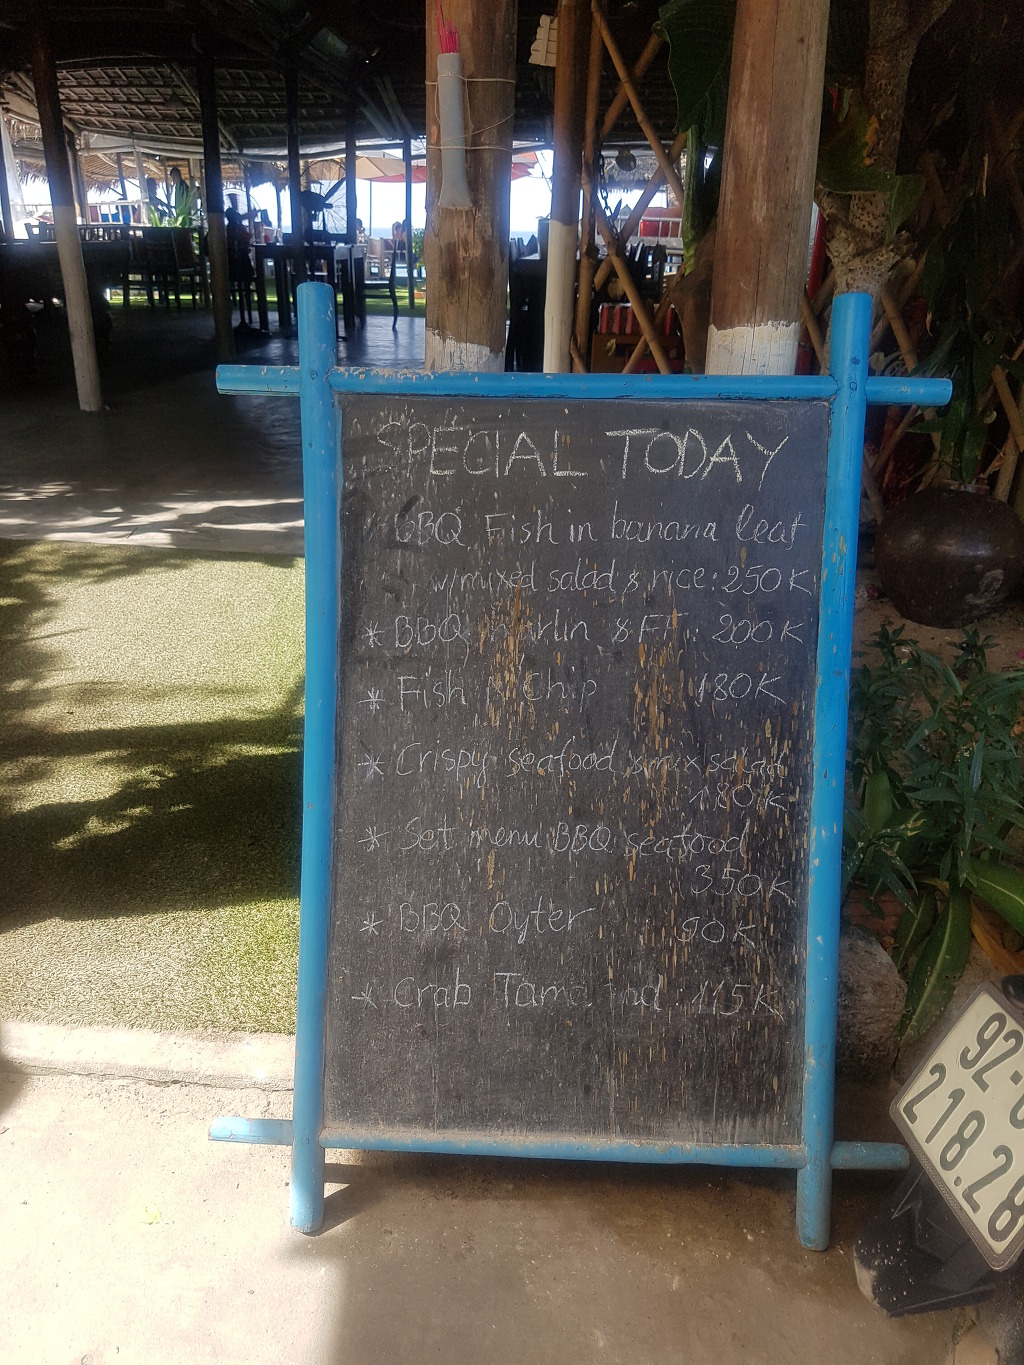 SPECIAL TODAY
BBQ Fish in banana leaf
w/mixed salad & rice: 250K
* BBQ Marlin & FF: 200K
* Fish N Chip 180K
* Crispy seafood & mix salad
180K
* Set menu BBQ seafood
350K
* BBQ Oyter 90K
* Crab Tamarind: 115K
92-
218.28